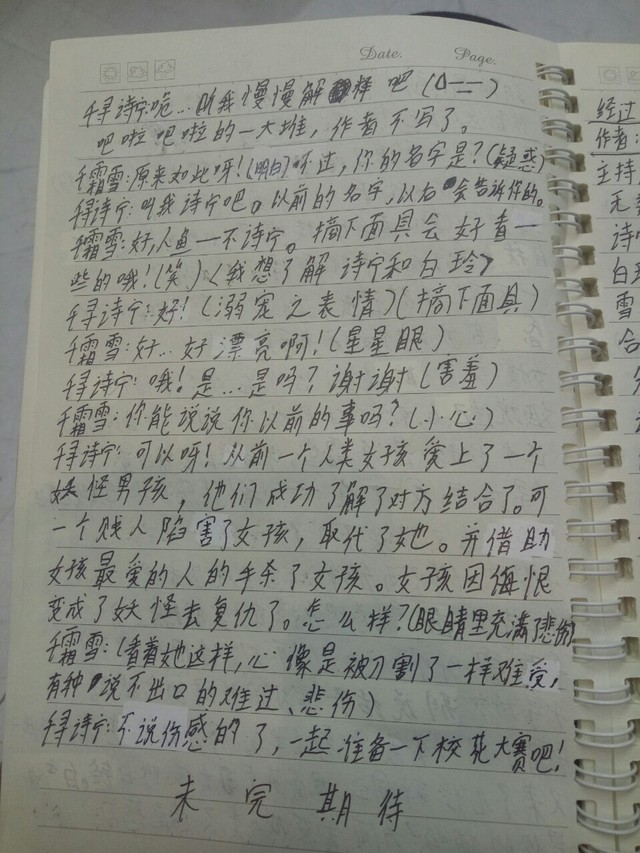 Date. Page.
千寻诗宁:呃…听我慢慢解释吧(△一一)
吧啦吧啦的一大堆,作者不写了。
千霜雪:原来如此呀!(明白)不过,你的名字是?(疑惑)
千寻诗宁:叫我诗宁吧。以前的名字,以后会告诉你的。
千霜雪:好,人鱼一不诗宁。摘下面具会好看一
些的哦!(笑)〈我想了解诗宁和白玲〉
千寻诗宁:好!(溺宠之表情)(摘下面具)
千霜雪:好…好漂亮啊!(星星眼)
千寻诗宁:哦!是…是吗?谢谢(害羞)
千霜雪:你能说说你以前的事吗?(小心)
千寻诗宁:可以呀!从前一个人类女孩爱上了一个
妖怪男孩,他们成功了解了对方结合了。可
一个贱人陷害了女孩,取代了她。并借助
女孩最爱的人的手杀了女孩。女孩因悔恨
变成了妖怪去复仇了。怎么样?(眼睛里充满了悲伤)
千霜雪:(看着她这样,心像是被刀割了一样难受,
有种说不出口的难过、悲伤)
千寻诗宁:不说伤感的了,一起准备一下校花大赛吧!
未完期待
经过
作者:
主持
无
诗
白玲
雪
合